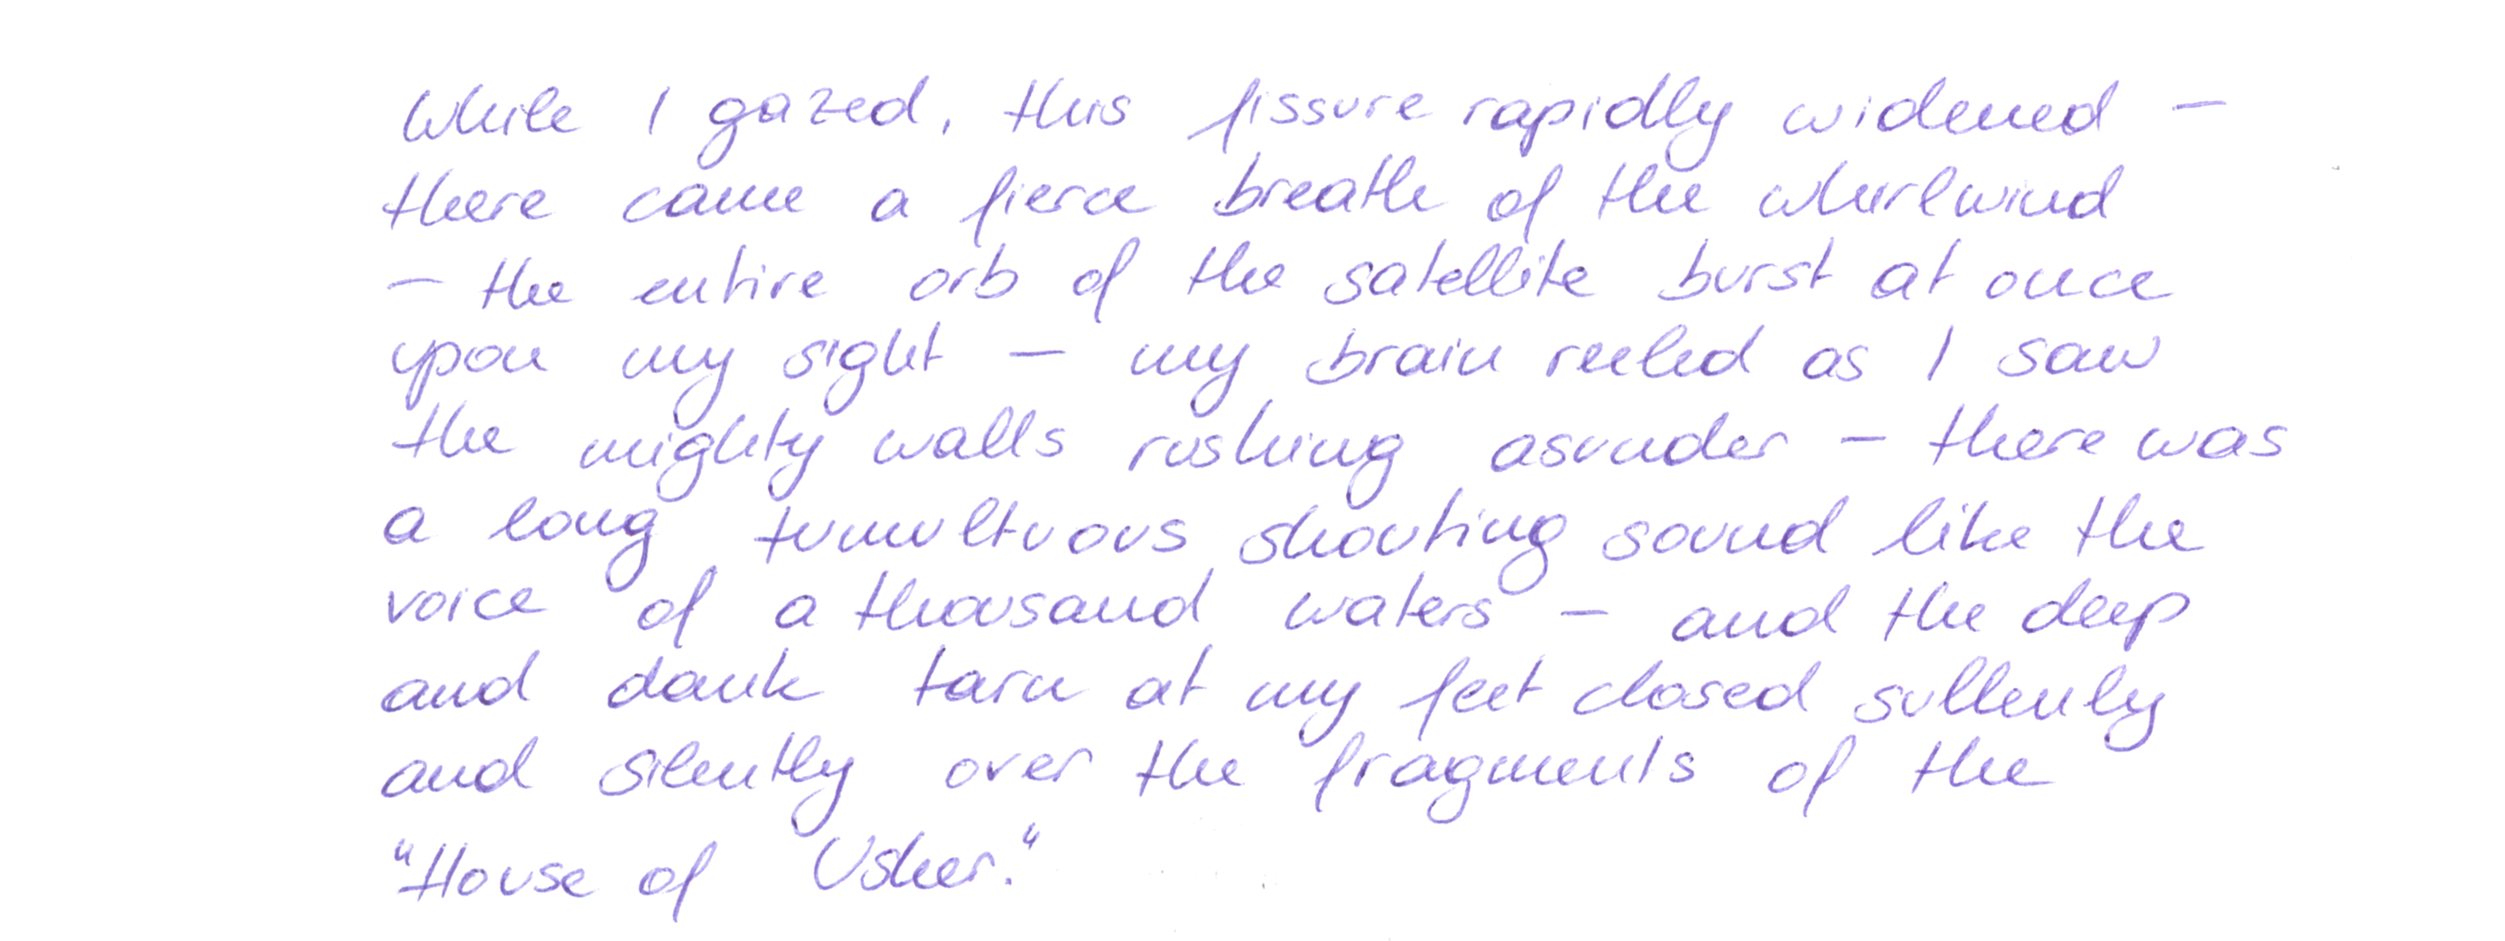 While I gazed, this fissure rapidly widened —
there came a fierce breath of the whirlwind
— the entire orb of the satellite burst at once
upon my sight — my brain reeled as I saw
the mighty walls rushing asunder — there was
a long tumultuous shouting sound like the
voice of a thousand waters — and the deep
and dank tarn at my feet closed sullenly
and silently over the fragments of the
"House of Usher."